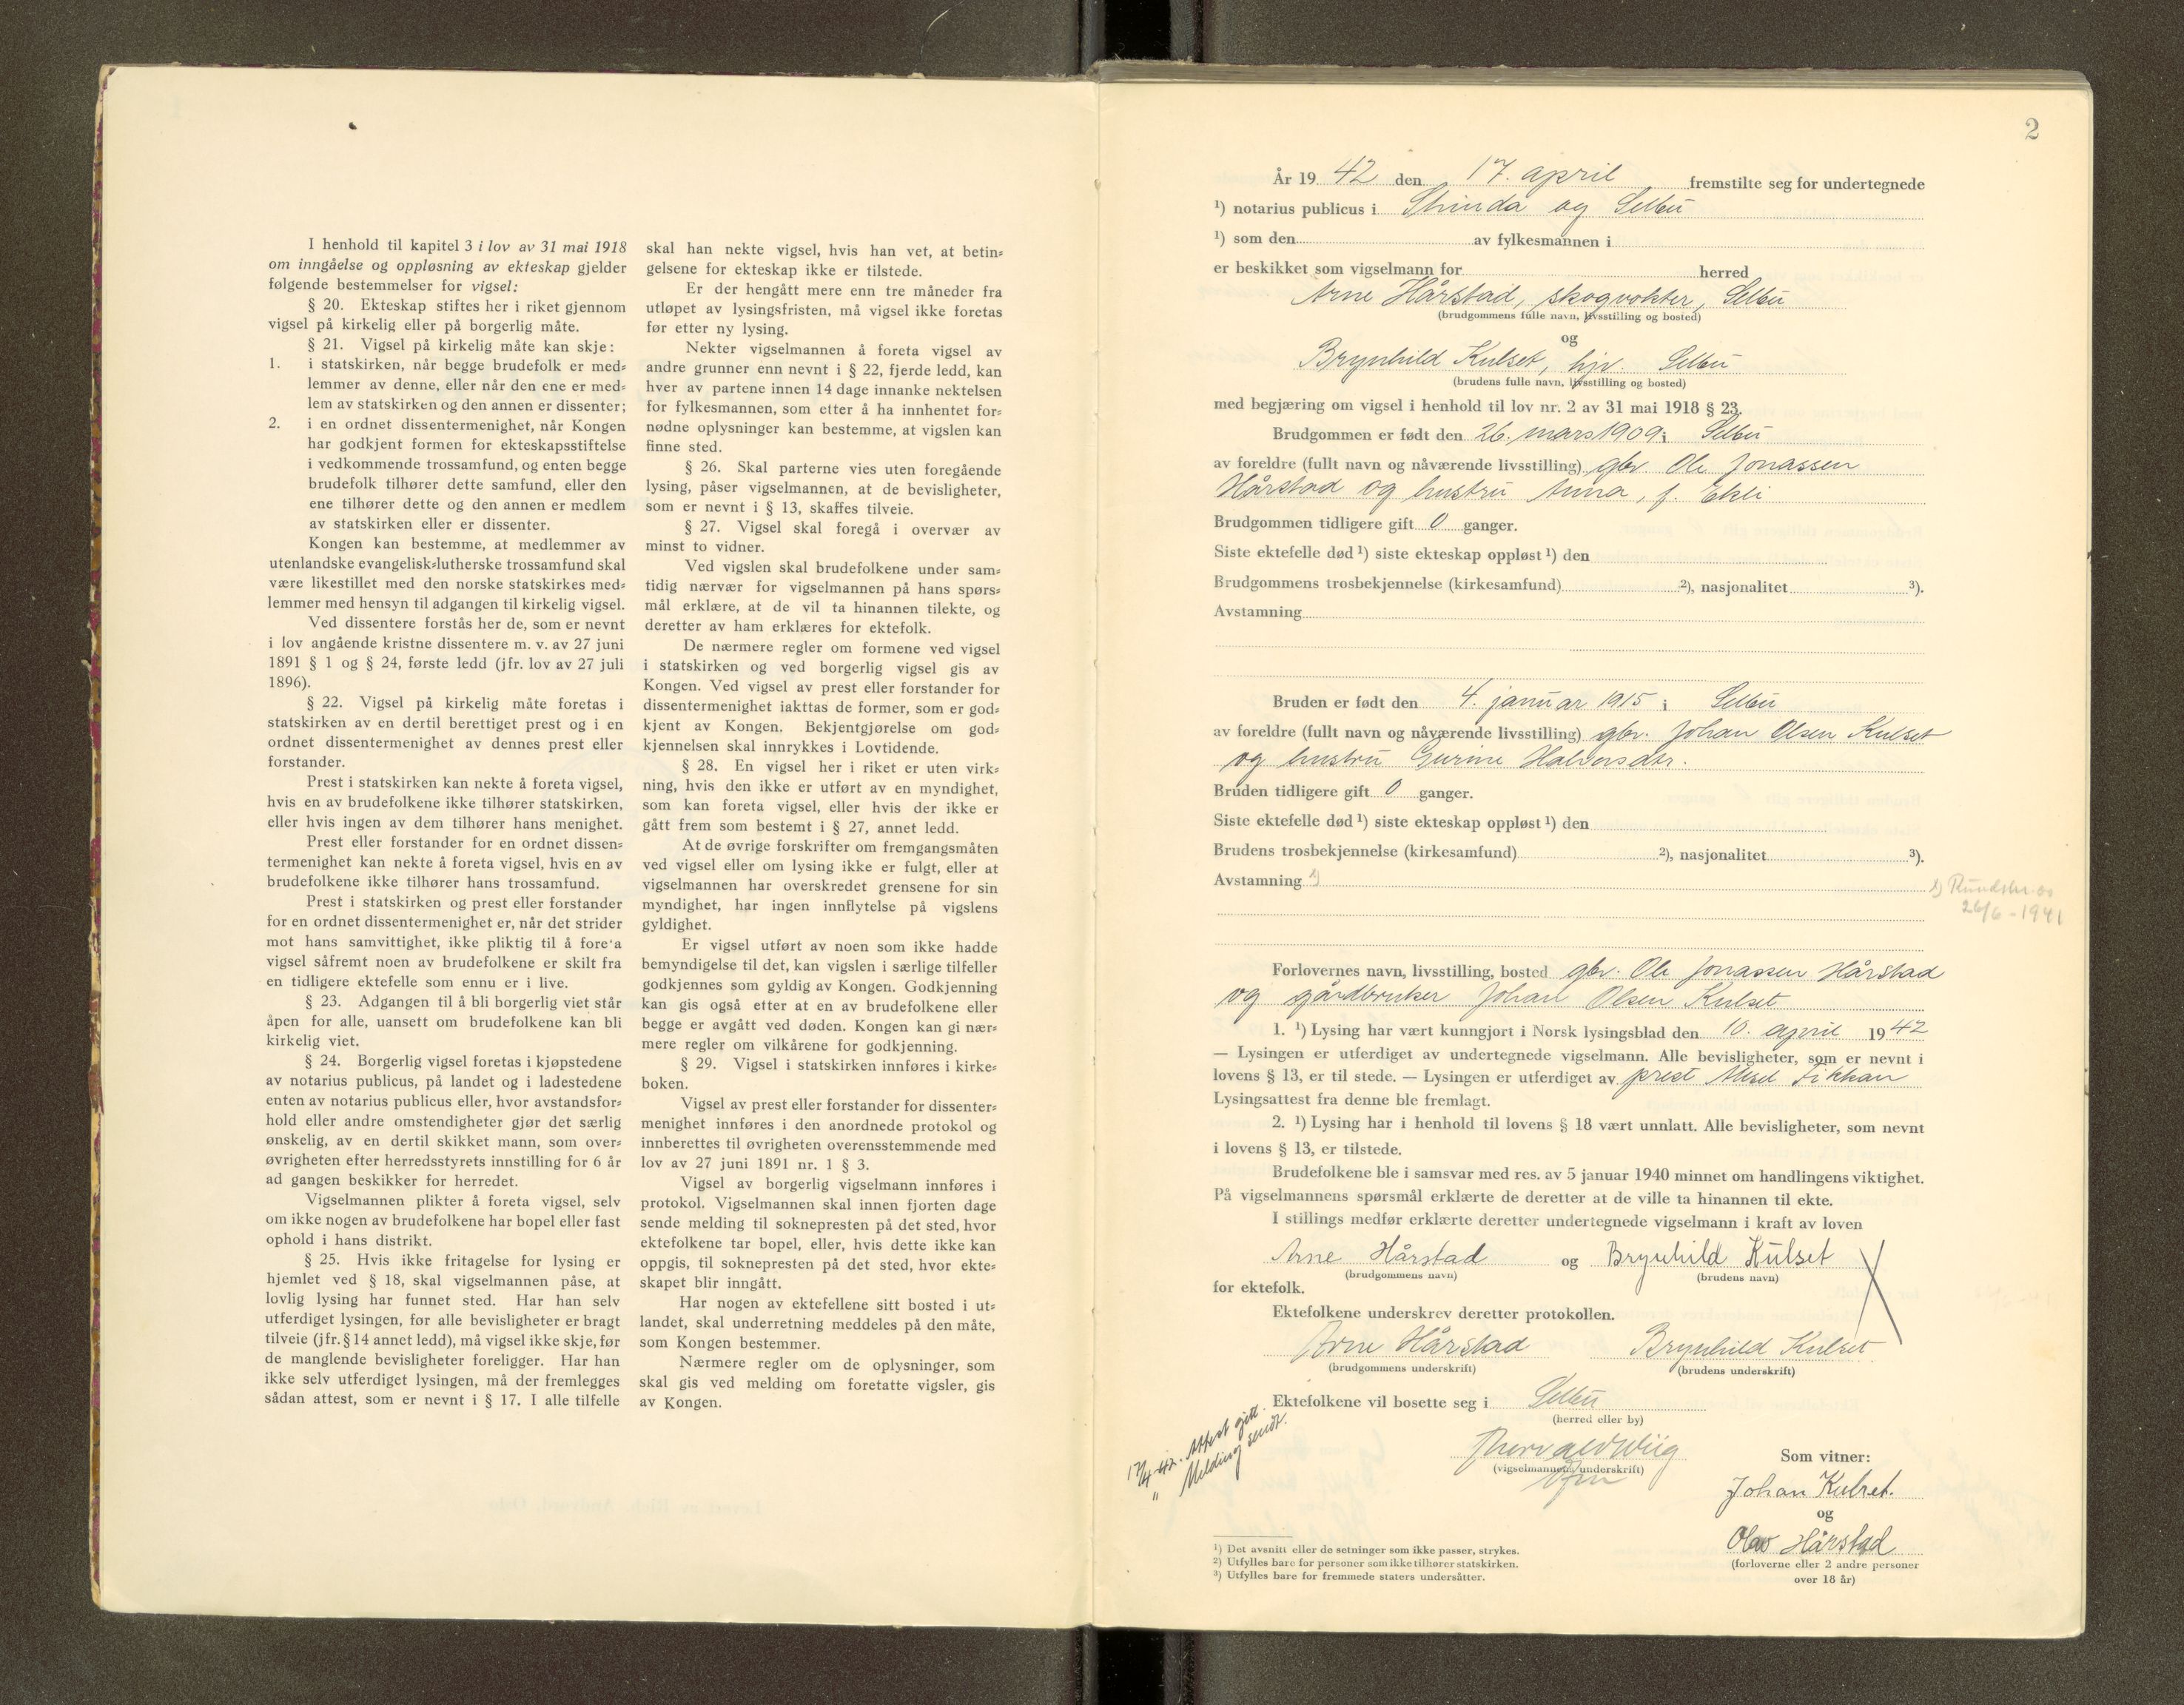 I henhold til kapitel 3 i lov av 31 mai 1918
om inngåelse og oppløsning av ekteskap gjelder
følgende bestemmelser for vigsel:
§ 20. Ekteskap stiftes her i riket gjennom
vigsel på kirkelig eller på borgerlig måte.
§ 21. Vigsel på kirkelig måte kan skje:
1. i statskirken, når begge brudefolk er med-
lemmer av denne, eller når den ene er med-
lem av statskirken og den annen er dissenter;
2. i en ordnet dissentermenighet, når Kongen
har godkjent formen for ekteskapsstiftelse
i vedkommende trossamfund, og enten begge
brudefolk tilhører dette samfund, eller den
ene tilhører dette og den annen er medlem
av statskirken eller er dissenter.
Kongen kan bestemme, at medlemmer av
utenlandske evangelisk-lutherske trossamfund skal
være likestillet med den norske statskirkes med-
lemmer med hensyn til adgangen til kirkelig vigsel.
Ved dissentere forstås her de, som er nevnt
i lov angående kristne dissentere m. v. av 27 juni
1891 § 1 og § 24, første ledd (jfr. lov av 27 juli
1896).
§ 22. Vigsel på kirkelig måte foretas i
statskirken av en dertil berettiget prest og i en
ordnet dissentermenighet av dennes prest eller
forstander.
Prest i statskirken kan nekte å foreta vigsel,
hvis en av brudefolkene ikke tilhører statskirken,
eller hvis ingen av dem tilhører hans menighet.
Prest eller forstander for en ordnet dissen-
termenighet kan nekte å foreta vigsel, hvis en av
brudefolkene ikke tilhører hans trossamfund.
Prest i statskirken og prest eller forstander
for en ordnet dissentermenighet er, når det strider
mot hans samvittighet, ikke pliktig til å fore'a
vigsel såfremt noen av brudefolkene er skilt fra
en tidligere ektefelle som ennu er i live.
§ 23. Adgangen til å bli borgerlig viet står
åpen for alle, uansett om brudefolkene kan bli
kirkelig viet.
§ 24. Borgerlig vigsel foretas i kjøpstedene
av notarius publicus, på landet og i ladestedene
enten av notarius publicus eller, hvor avstandsfor-
hold eller andre omstendigheter gjør det særlig
ønskelig, av en dertil skikket mann, som over-
øvrigheten efter herredsstyrets innstilling for 6 år
ad gangen beskikker for herredet.
Vigselmannen plikter å foreta vigsel, selv
om ikke nogen av brudefolkene har bopel eller fast
ophold i hans distrikt.
§ 25. Hvis ikke fritagelse for lysing er
hjemlet ved § 18, skal vigselmannen påse, at
lovlig lysing har funnet sted. Har han selv
utferdiget lysingen, før alle bevisligheter er bragt
tilveie (jfr. § 14 annet ledd), må vigsel ikke skje, før
de manglende bevisligheter foreligger. Har han
ikke selv utferdiget lysingen, må der fremlegges
sådan attest, som er nevnt i § 17. I alle tilfelle
skal han nekte vigsel, hvis han vet, at betin-
gelsene for ekteskap ikke er tilstede.
Er der hengått mere enn tre måneder fra
utløpet av lysingsfristen, må vigsel ikke foretas
før etter ny lysing.
Nekter vigselmannen å foreta vigsel av
andre grunner enn nevnt i § 22, fjerde ledd, kan
hver av partene innen 14 dage innanke nektelsen
for fylkesmannen, som etter å ha innhentet for-
nødne oplysninger kan bestemme, at vigslen kan
finne sted.
§ 26. Skal parterne vies uten foregående
lysing, påser vigselmannen, at de bevisligheter,
som er nevnt i § 13, skaffes tilveie.
§ 27. Vigsel skal foregå i overvær av
minst to vidner.
Ved vigslen skal brudefolkene under sam-
tidig nærvær for vigselmannen på hans spørs-
mål erklære, at de vil ta hinannen tilekte, og
deretter av ham erklæres for ektefolk.
De nærmere regler om formene ved vigsel
i statskirken og ved borgerlig vigsel gis av
Kongen. Ved vigsel av prest eller forstander for
dissentermenighet iakttas de former, som er god-
kjent av Kongen. Bekjentgjørelse om god-
kjennelsen skal innrykkes i Lovtidende.
§ 28. En vigsel her i riket er uten virk-
ning, hvis den ikke er utført av en myndighet,
som kan foreta vigsel, eller hvis der ikke er
gått frem som bestemt i § 27, annet ledd.
At de øvrige forskrifter om fremgangsmåten
ved vigsel eller om lysing ikke er fulgt, eller at
vigselmannen har overskredet grensene for sin
myndighet, har ingen innflytelse på vigslens
gyldighet.
Er vigsel utført av noen som ikke hadde
bemyndigelse til det, kan vigslen i særlige tilfeller
godkjennes som gyldig av Kongen. Godkjenning
kan gis også etter at en av brudefolkene eller
begge er avgått ved døden. Kongen kan gi nær-
mere regler om vilkårene for godkjenning.
§ 29. Vigsel i statskirken innføres i kirke-
boken.
Vigsel av prest eller forstander for dissenter-
menighet innføres i den anordnede protokol og
innberettes til øvrigheten overensstemmende med
lov av 27 juni 1891 nr. 1 § 3.
Vigsel av borgerlig vigselmann innføres i
protokol. Vigselmannen skal innen fjorten dage
sende melding til soknepresten på det sted, hvor
ektefolkene tar bopel, eller, hvis dette ikke kan
oppgis, til soknepresten på det sted, hvor ekte-
skapet blir inngått.
Har nogen av ektefellene sitt bosted i ut-
landet, skal underretning meddeles på den måte,
som Kongen bestemmer.
Nærmere regler om de oplysninger, som
skal gis ved melding om foretatte vigsler, gis
av Kongen.
2
År 19 42 den 17. april fremstilte seg for undertegnede
¹) notarius publicus i Strinda og Selbu
¹) som den av fylkesmannen i
er beskikket som vigselmann for herred
Arne Hårstad, skogvokter, Selbu
(brudgommens fulle navn, livsstilling og bosted)
og
Brynhild Kulset, hjv. Selbu
(brudens fulle navn, livsstilling og bosted)
med begjæring om vigsel i henhold til lov nr. 2 av 31 mai 1918 § 23.
Brudgommen er født den 26. mars 1909 i Selbu
av foreldre (fullt navn og nåværende livsstilling) gbr. Ole Jonassen
Hårstad og hustru Anna, f. Ekli
Brudgommen tidligere gift 0 ganger.
Siste ektefelle død ¹) siste ekteskap oppløst ¹) den
Brudgommens trosbekjennelse (kirkesamfund) ²), nasjonalitet ³).
Avstamning
Bruden er født den 4. januar 1915 i Selbu
av foreldre (fullt navn og nåværende livsstilling) gbr. Johan Olsen Kulset
og hustru Gurine Halvorsdtr.
Bruden tidligere gift 0 ganger.
Siste ektefelle død ¹) siste ekteskap oppløst ¹) den
Brudens trosbekjennelse (kirkesamfund) ²), nasjonalitet ³).
Avstamning 1)
1) Rundskr. av
26/6 - 1941
Forlovernes navn, livsstilling, bosted gbr. Ole Jonassen Hårstad
og gårdbruker Johan Olsen Kulset
1. ¹) Lysing har vært kunngjort i Norsk lysingsblad den 10. april 19 42
— Lysingen er utferdiget av undertegnede vigselmann. Alle bevisligheter, som er nevnt i
lovens § 13, er til stede. — Lysingen er utferdiget av prest Aksel Fikkan
Lysingsattest fra denne ble fremlagt.
2. ¹) Lysing har i henhold til lovens § 18 vært unnlatt. Alle bevisligheter, som nevnt
i lovens § 13, er tilstede.
Brudefolkene ble i samsvar med res. av 5 januar 1940 minnet om handlingens viktighet.
På vigselmannens spørsmål erklærte de deretter at de ville ta hinannen til ekte.
I stillings medfør erklærte deretter undertegnede vigselmann i kraft av loven
Arne Hårstad og Brynhild Kulset
(brudgommens navn) (brudens navn)
for ektefolk.
Ektefolkene underskrev deretter protokollen.
Arne Hårstad Brynhild Kulset
(brudgommens underskrift) (brudens underskrift)
Ektefolkene vil bosette seg i Selbu
(herred eller by)
17/4-42. Attest gitt.
" Melding sendt.
Thorvald Wiig
(vigselmannens underskrift)
Som vitner:
Johan Kulset.
og
Olav Hårstad
(forloverne eller 2 andre personer
over 18 år)
¹) Det avsnitt eller de setninger som ikke passer, strykes.
²) Utfylles bare for personer som ikke tilhører statskirken.
³) Utfylles bare for fremmede staters undersåtter.